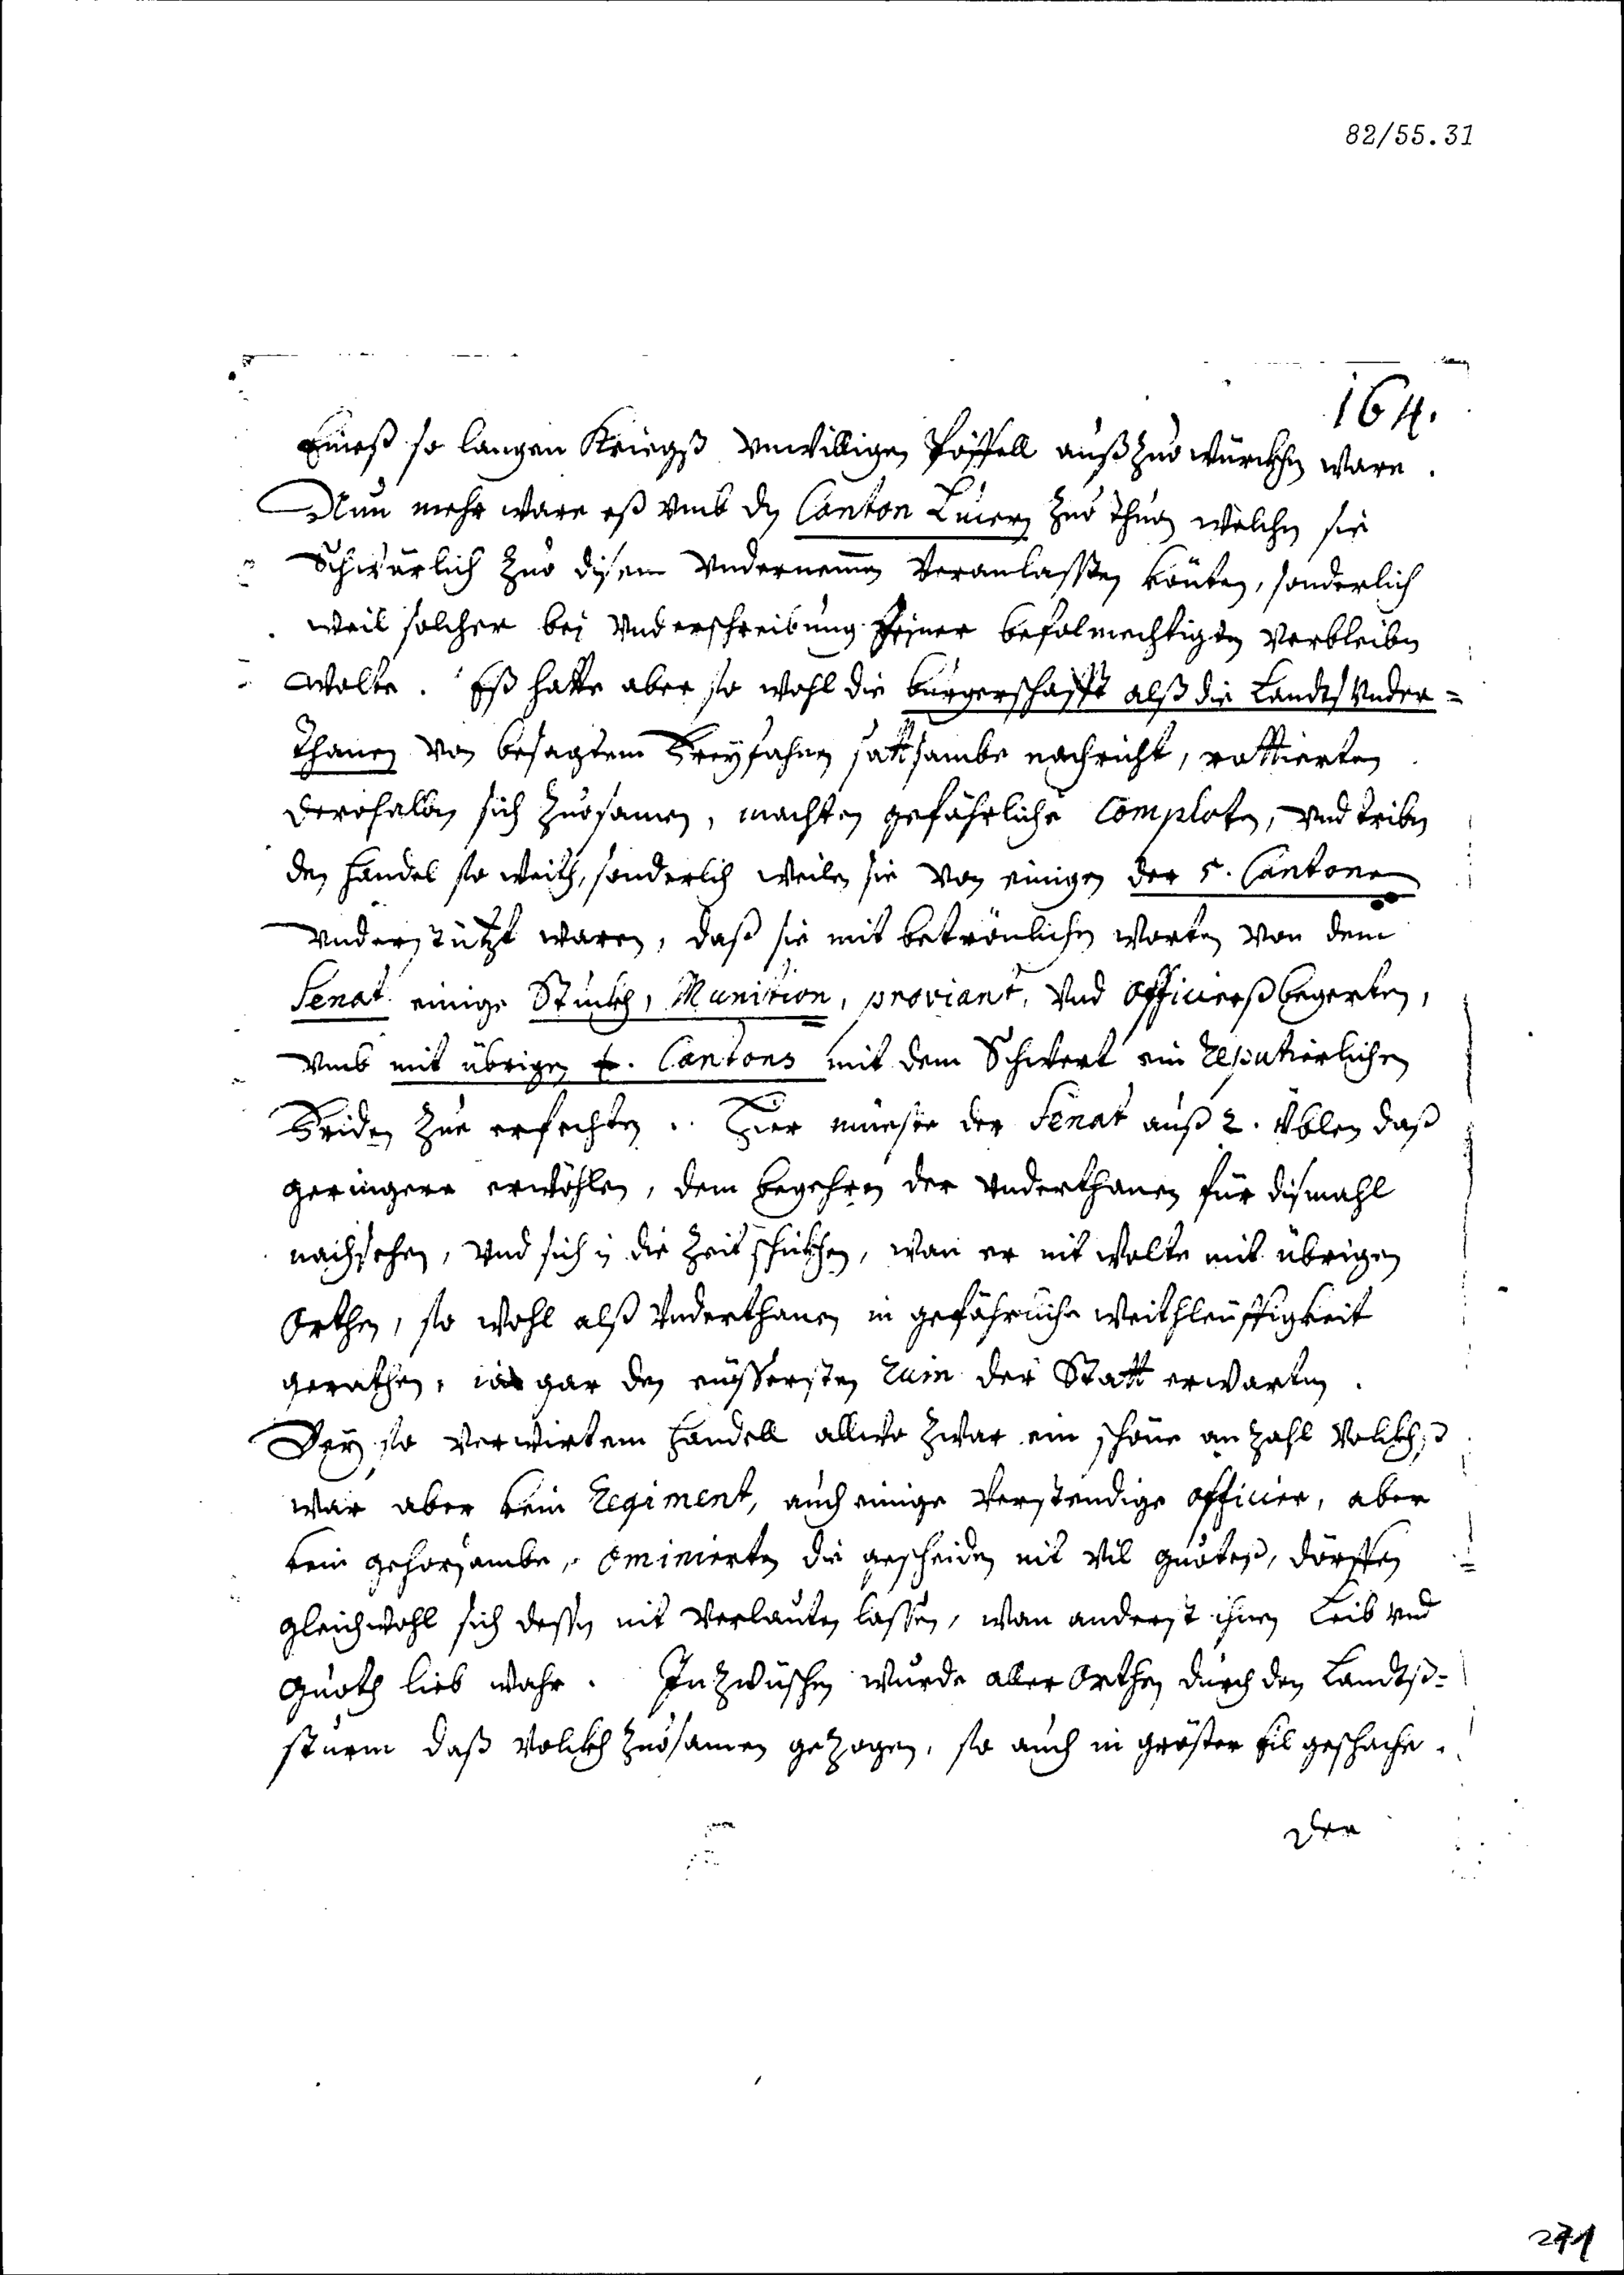 82/55.31
164.
Eineß so langen Kriegß vnwilligen Pöffell außzuo würckhen ware.
Nun mehr ware eß vmb den Canton Lucern zuo thuon welchen sie
Schwärlich zuo disem vndernemen veranlassten könten, sonderlich
weil solcher bei vnderschreibung seiner befolmechtigten verbleiben
wolte. Eß hatte aber so wohl die burgerschafft alß die Landts Vnder=
thanen von besagtem Freyfahnen sattsambe nachricht, rottierten
derohalben sich zuosamen, machten gefährliche Comploten, vnd triben
den handel so weith, sonderlich weilen sie von einigen der 5. Cantone
vnderstützt waren, daß sie mit betröulichen worten von dem
Senat einige Stuckh, Munition, proviant, vnd Officierß begerten,
vmb mit übrigen 4. Cantons mit dem Schwert ein reputierlichen
Friden zue erfechten. Hier mueste der Senat auß 2. Üblen daß
geringere erwöhlen, dem begehren der vnderthanen für dismahl
nachsehen, vnd sich in die Zeit schickhen, wan er nit wolte mit übrigen
Orthen, so wohl alß vnderthanen in gefährliche weithleuffigkeit
gerathen, ia gar den eussersten ruin der Statt erwarten.
Bey so verwirtem handell allwo zwar ein schöne anzahl volckhß
war aber kein Regiment, auch einige verstendige officier, aber
kein gehorsambe, ominierten die gescheiden nit vil guoteß, dörfften
gleichwohl sich dessen nit verlauten lassen, wan anderst ihnen Leib vnd
Guoth lieb wahr. Inzwüschen wurde aller Orthen durch den Landtß=
sturm daß volckh zuosamen gezogen, so auch in gröster Eil geschache.
Der
271